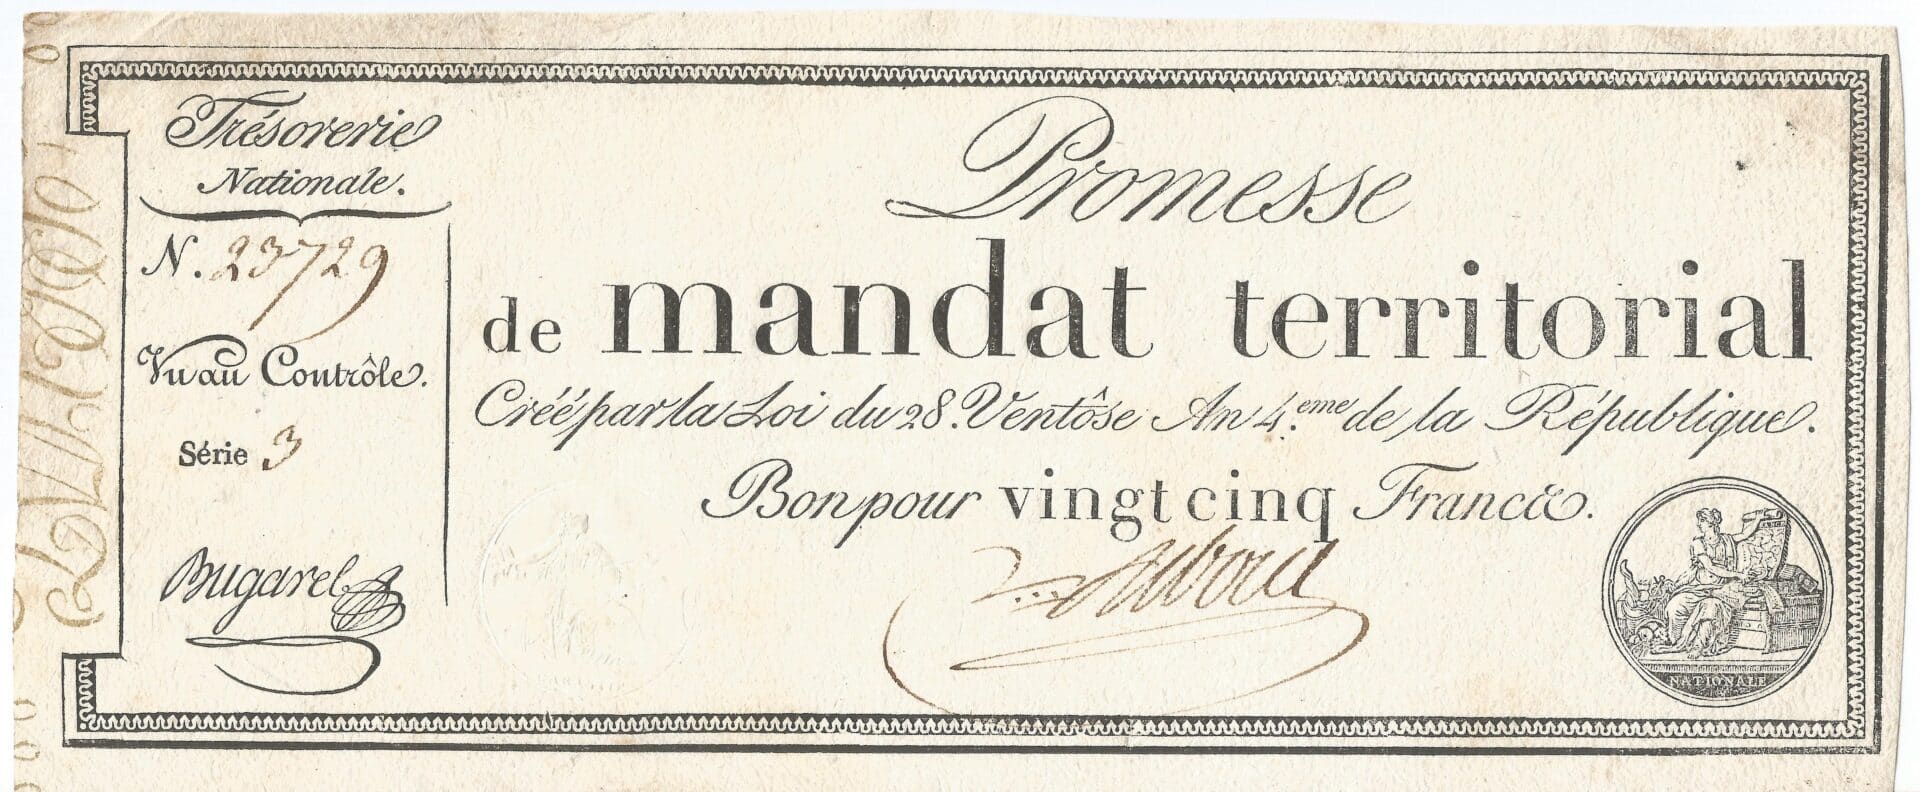 Trésorerie
Nationale.
N. 23729
Vu au Contrôle.
Série 3
Bugarel
Promesse
de mandat territorial
Créé par la Loi du 28. Ventôse An 4.eme de la République.
Bon pour vingt cinq Francs.
NATIONALE